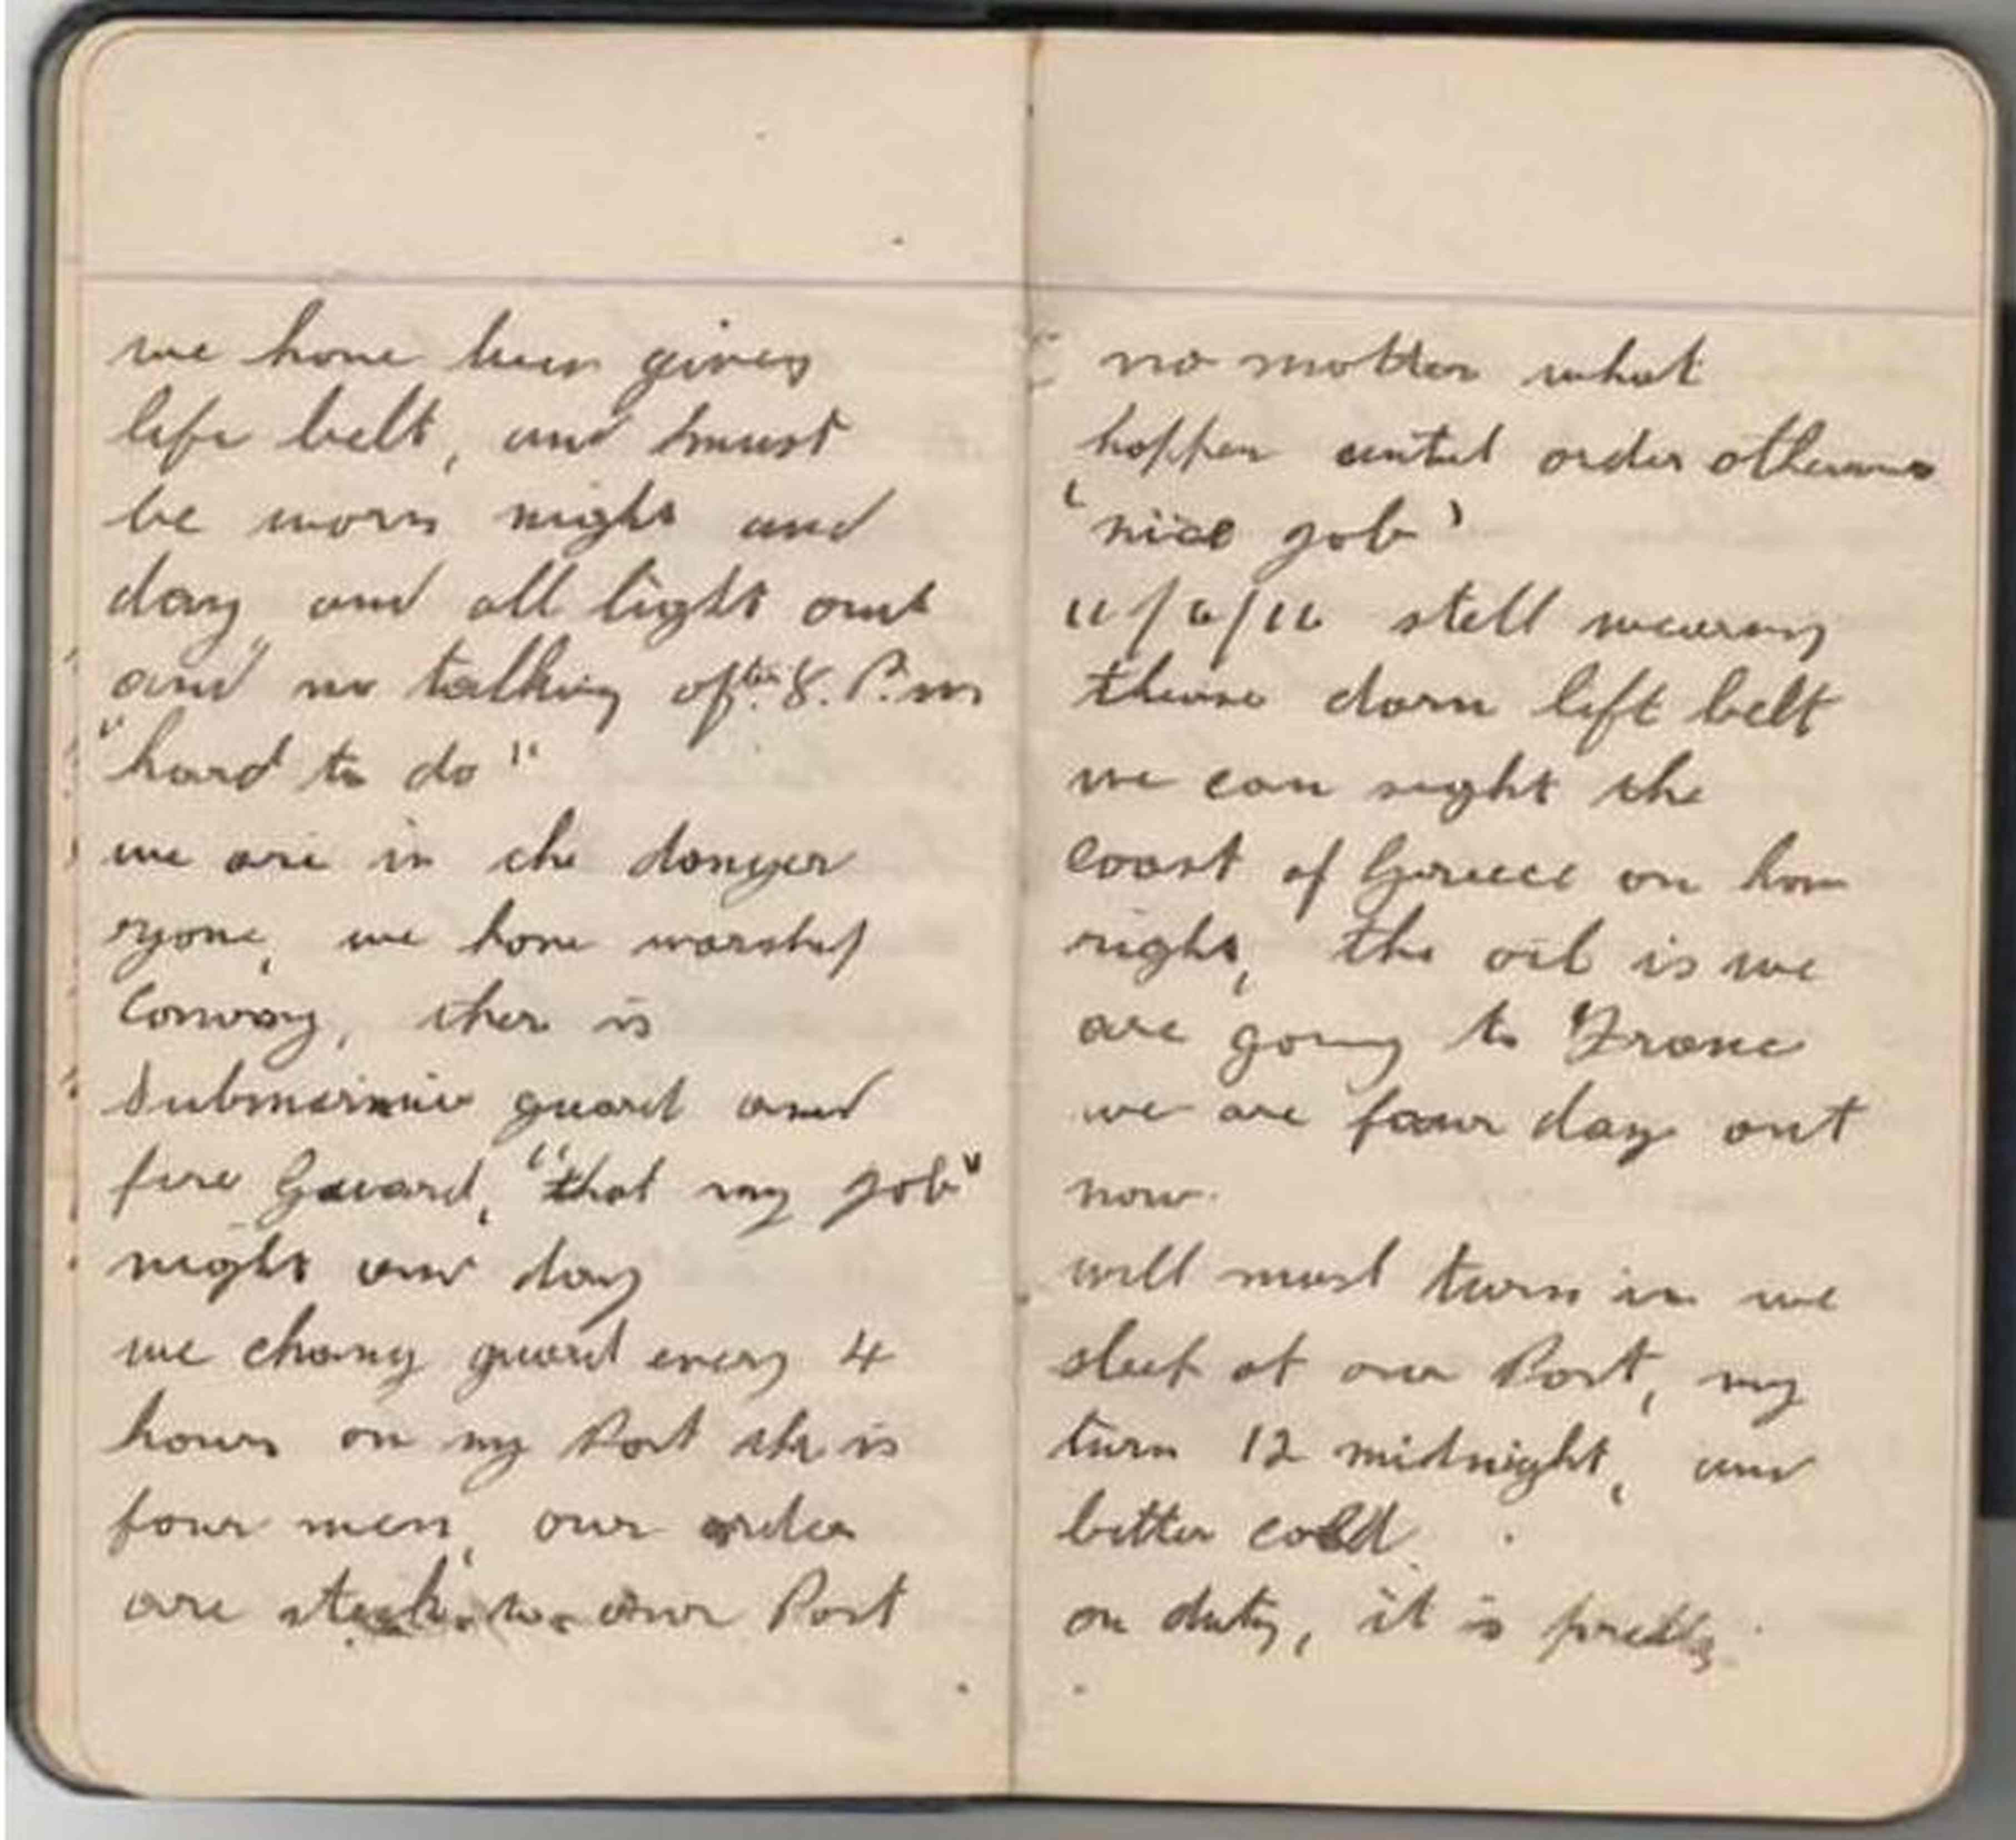 we have been given
life belt, and must
be worn night and
day, and all light out
and no talking after 8. P.m
"hard to do"
we are in the danger
zone, we have warship
Convoy, ther is
Submarinie guard and
fire Guard, "that my job"
night and day
we chang guard every 4
hours on my Post the is
four men, our order
are stick to our Post
no matter what
happen until order otherwise
'nice job'
11/6/16 still wearing
these darn lift belt
we can sight the
coast of Greece on how
right, the oil is we
are going to Franc
we are four day out
now.
will must turn in we
sleep at our Post, my
turn 12 midnight, and
bitter cold.
on duty, it is pretty